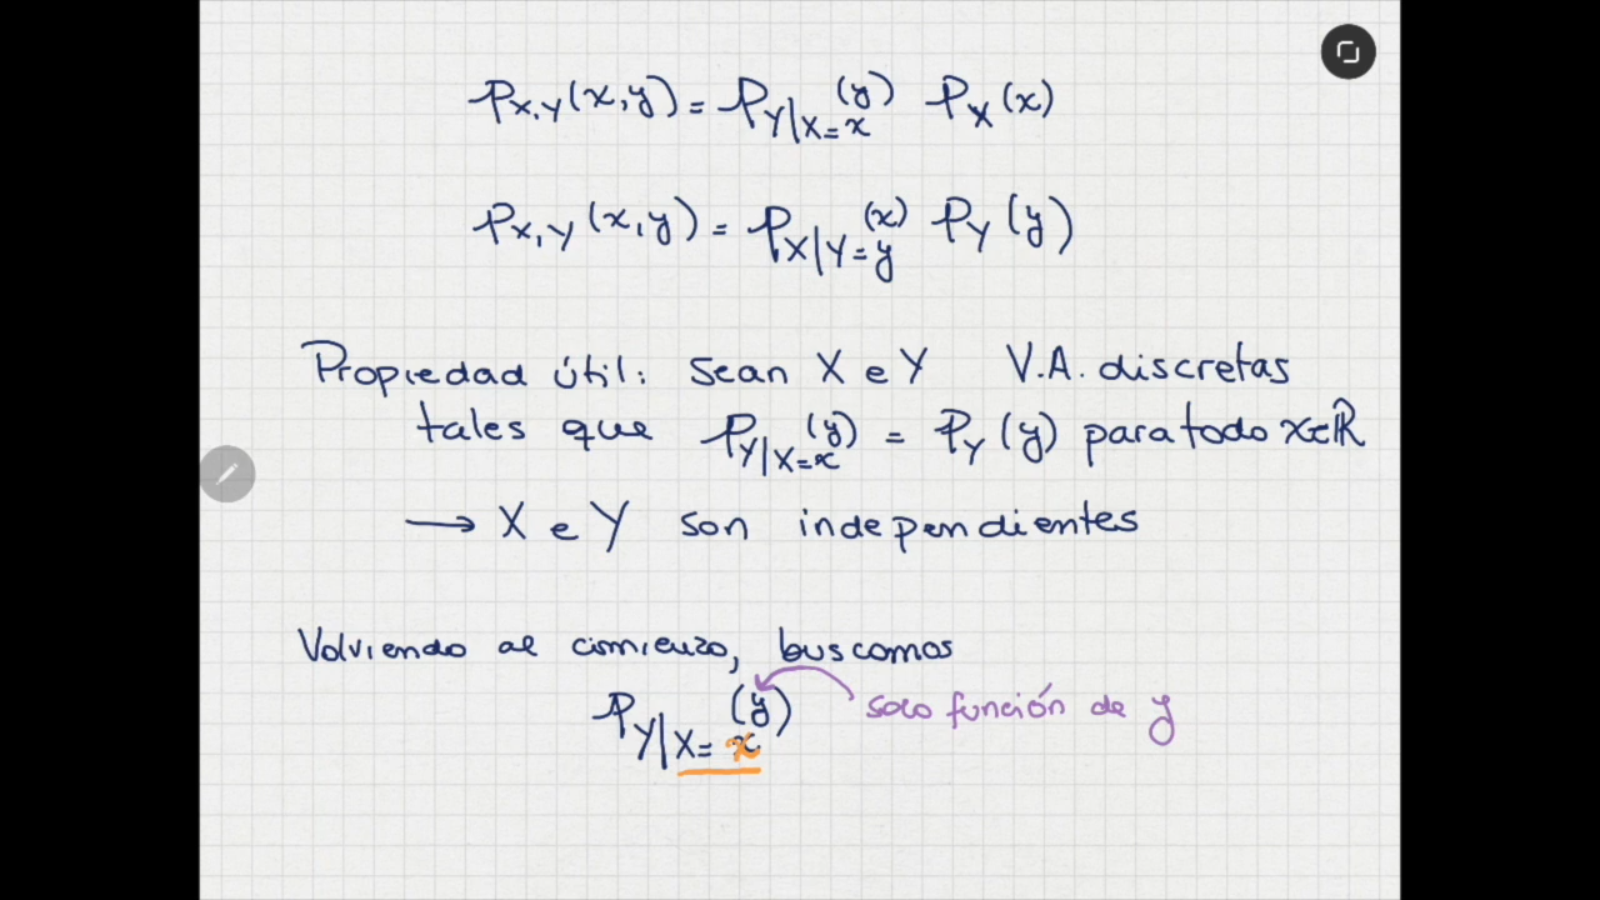 P_{X,Y}(x,y) = P_{Y|X=x}(y) P_X(x)
P_{X,Y}(x,y) = P_{X|Y=y}(x) P_Y(y)
Propiedad útil: Sean X e Y V.A. discretas
tales que P_{Y|X=x}(y) = P_Y(y) para todo x∈ℝ
→ X e Y son independientes
Volviendo al comienzo, buscamos
P_{Y|X=x}(y) solo función de y